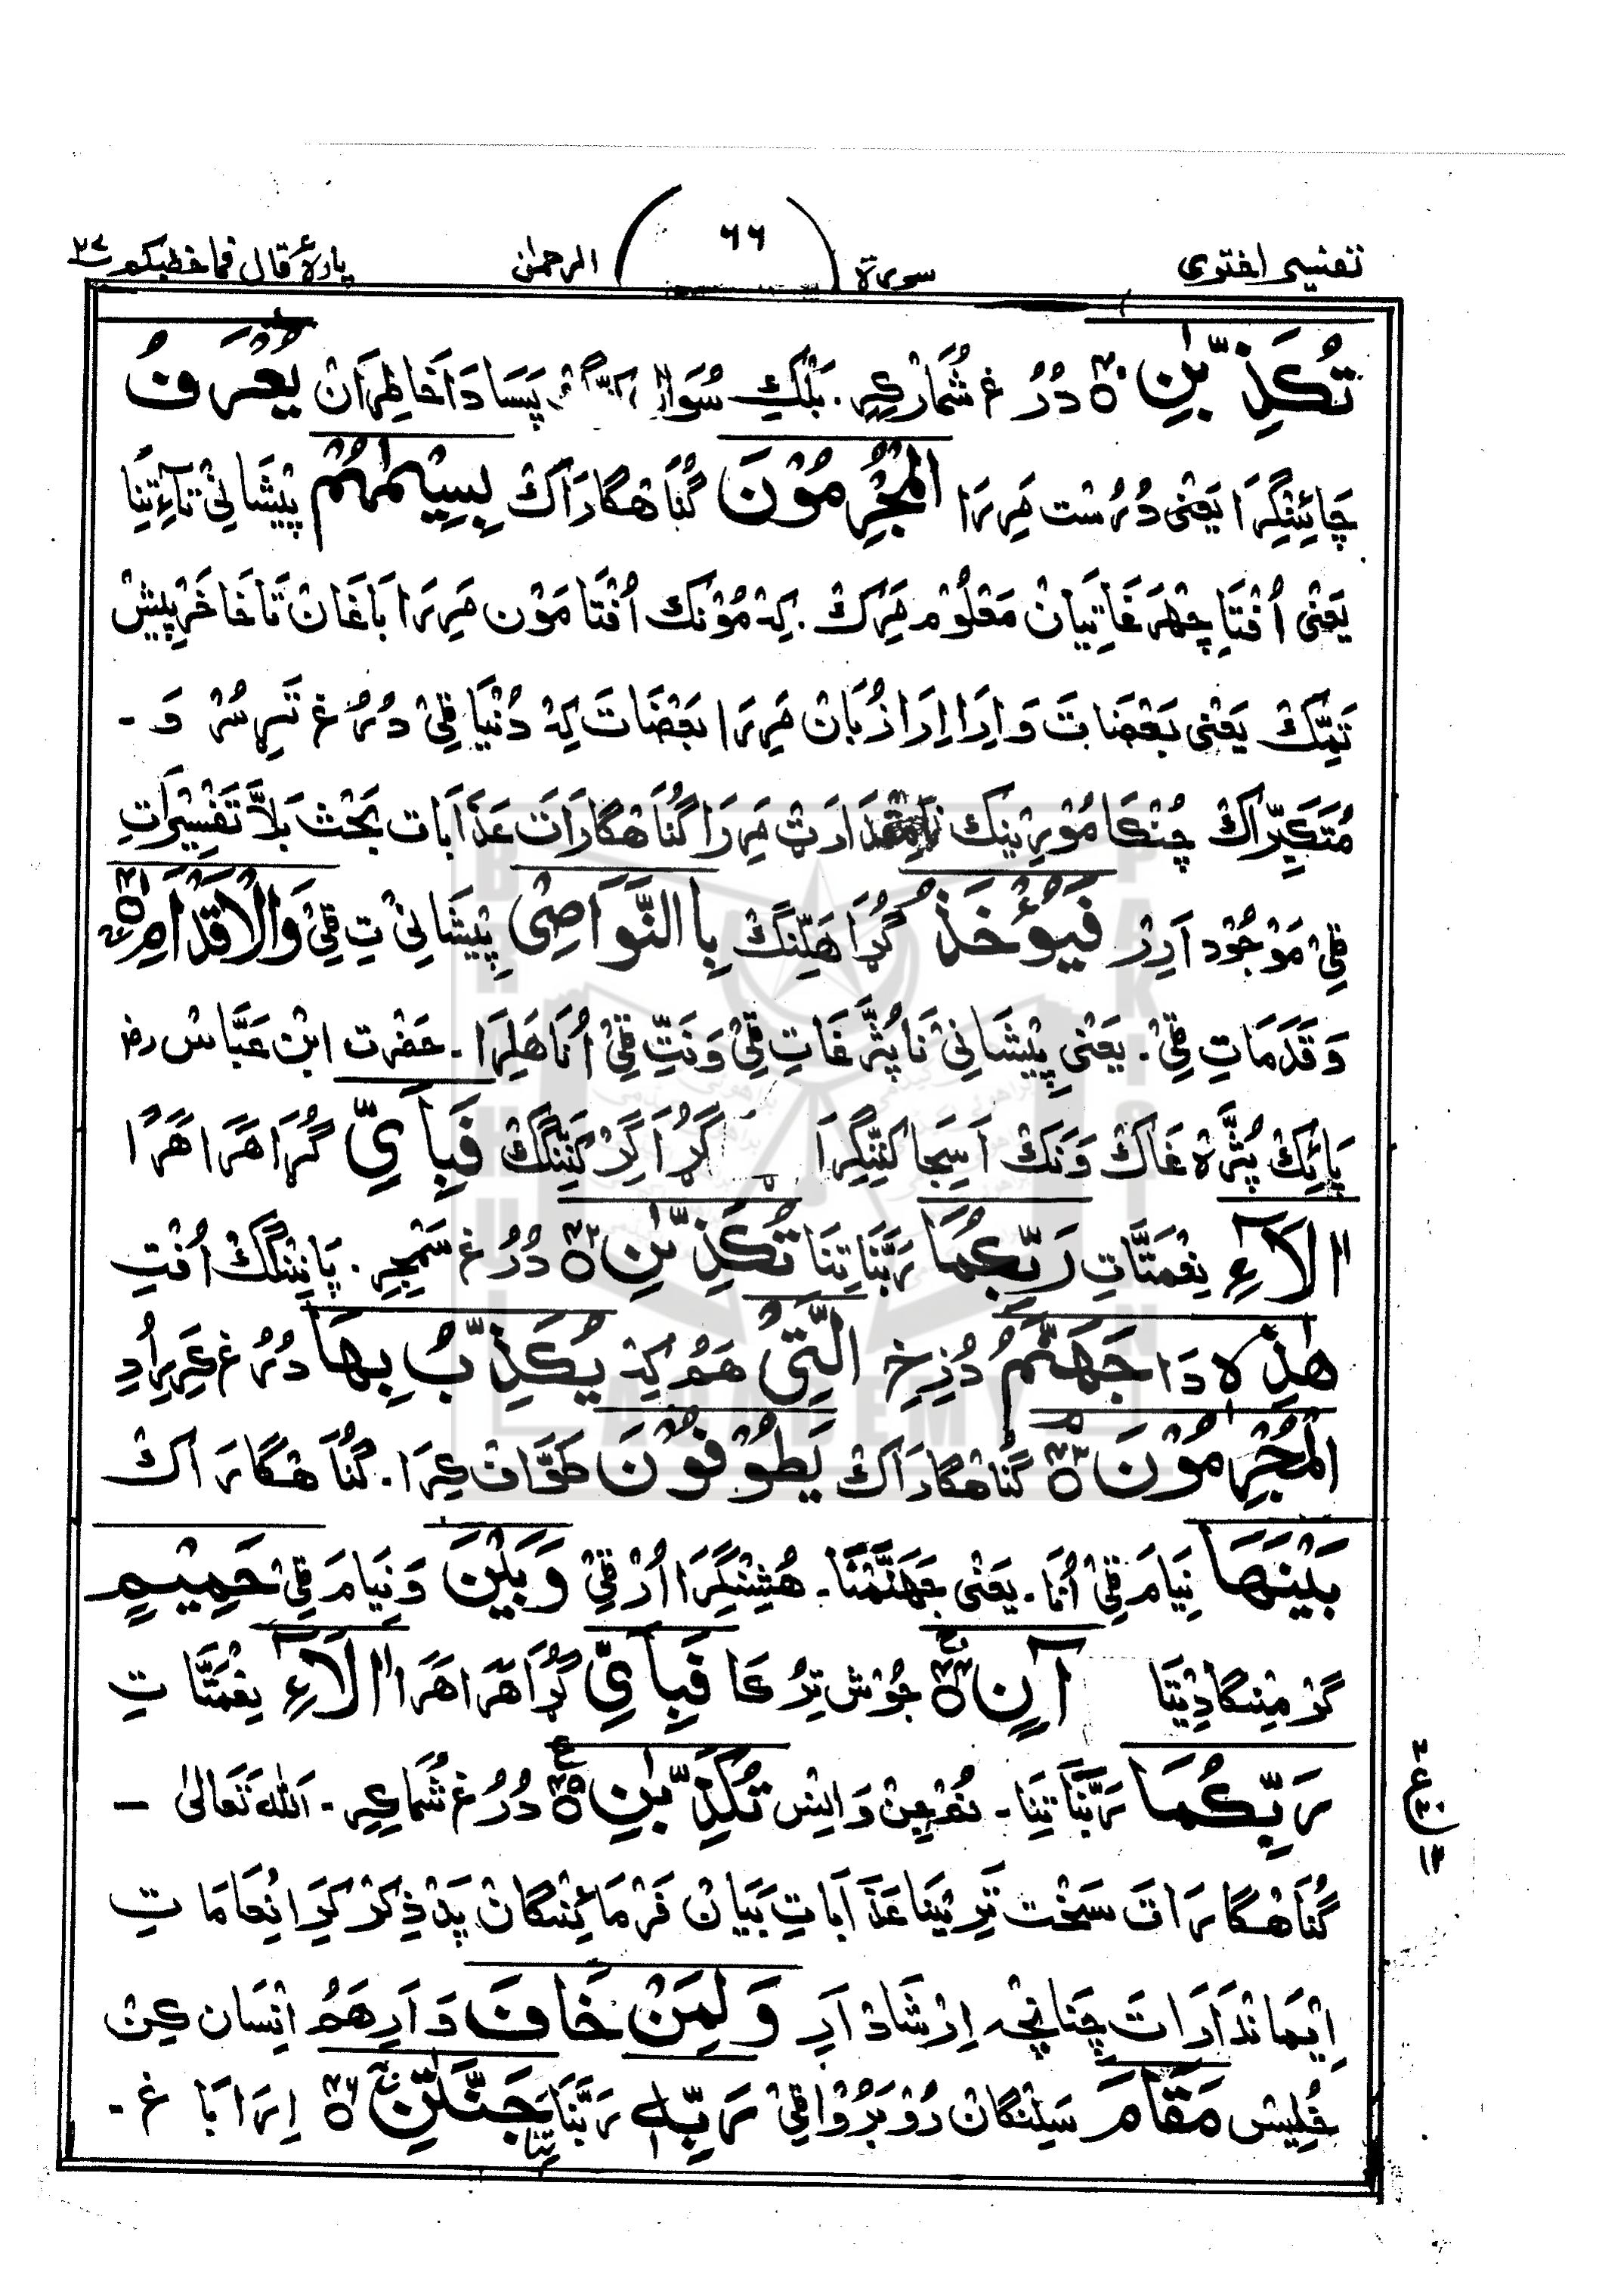 تفسیر اختری سورۃ ٦٦ الرحمٰن پارۂ قال فما خطبکم ٢٧
تُكَذِّبٰنِ ٣٠ دُرُ غ شُمَار کِرِ۔ بَلْکِ سُوَال پَسَا دَا خَاطِرَانْ يُعْرَفُ
چَائِنْگِرَا یَعْنٰی دُرُسْت مَرِرَا الْمُجْرِمُوْنَ گُنَاهگارَاکْ بِسِيْمٰهُمْ پِیْشَانِیْ تَاءِتِنَا
یَعْنٰی اُفْتَا چِهْرَ غَاتِیَانْ مَعْلُوْم مَرِکْ۔ کِہْ مُوْنَک اُفْتَا مَوْن مَرِرَا بَاغَانْ تَاخَاخَرْ پِیشْ
تَمِّکْ یَعْنٰی بَعْضَاتَ وَاِرَا اِرَا زُبَانْ مَرِرَا بَعْضَاتَ کِہْ دُنْیَا قِیْ دُرُ غ تَرِسُرْ وَ۔
مُتَکَبِّرَاکْ چُنْکَا مُوْرِیْنِک مِقْدَارَتْ مَرِرَا گُنَاهگارَاتَ عَذَابَات بَحْث بَلَّا تَفْسِیْرَاتِ
قِیْ مَوْجُوْد اَرِرْ فَيُؤْخَذُ گُڑَا هَلِّنْگکْ بِالنَّوَاصِیْ پِیْشَانِیْ تِ قِیْ وَالْاَقْدَامِ ٤١
وَقَدَمَاتِ قِیْ۔ یَعْنٰی پِیْشَانِیْ نَا پُٹَّرْ غَاتِ قِیْ وَنَتِّ قِیْ اُنَا هَلِرَا۔ حضرت ابن عَبَّاسْ رض
پَائِکْ پُٹَّرْ غَاکْ وَنَکْ اَسِجَا کنِنْگِرَا گُڑَا گِرْ کَنِنْگکْ فَبِاَیِّ گُڑَا هَرَا هَرَا
اٰلَآءِ نِعْمَتَّاتِ رَبِّكُمَا رَبَّنَا تِنَا تُكَذِّبٰنِ ٤٢ دُرُ غ سَمْجِرِ۔ پَانِنْگکْ اُفْتِ
هٰذِهٖ دَا جَهَنَّمُ دُزِخ الَّتِیْ هَمُ کِہْ يُكَذِّبُ بِهَا دُرُ غ کَرِیرِاُدِ
الْمُجْرِمُوْنَ ٤٣ گُنَاهگارَاکْ يَطُوْفُوْنَ طَوَّافْ کِرَا۔ گُنَاهگارَاکْ
بَيْنَهَا نِیَامَ قِیْ اُنَا۔ یَعْنٰی جَهَنَّمْنَا۔ هُشِنْگِرَا اُرْ قِیْ وَبَيْنَ وَنِیَامَ قِیْ حَمِيْمٍ
گَرْمِنگا دِیْنَا اٰنٍ ٤٤ جُوْش تِرُ کَا فَبِاَیِّ گُڑَا هَرَا هَرَا اٰلَآءِ نِعْمَتَّاتِ
رَبِّكُمَا رَبَّنَا تِنَا۔ نُم جِن وَاِنْس تُكَذِّبٰنِ ٤٥ دُرُ غ شُمَا کِرِ۔ اَللّٰہ تَعَالٰی ۔
گُنَاهگارَاتَ سَخْت تَرِیْنَا عَذَابَاتِ بَیَانْ فَرْمَائِنْگانْ پَدْ ذِکَرْ کَرِ اِنْعَامَاتِ
اِیْمَانْدَارَاتَ چُنَانچِہ اِرْشَادْ اَرِ وَلِمَنْ خَافَ وَ اَرِهَمُ اِنْسَان کِنْ
خُلِیسْ مَقَامَ سَلِنْگانْ رُوْبَرُوْا قِیْ رَبِّهٖ رَبَّنَا تِنَا جَنَّتٰنِ ٤٦ اِرَا بَاغ۔